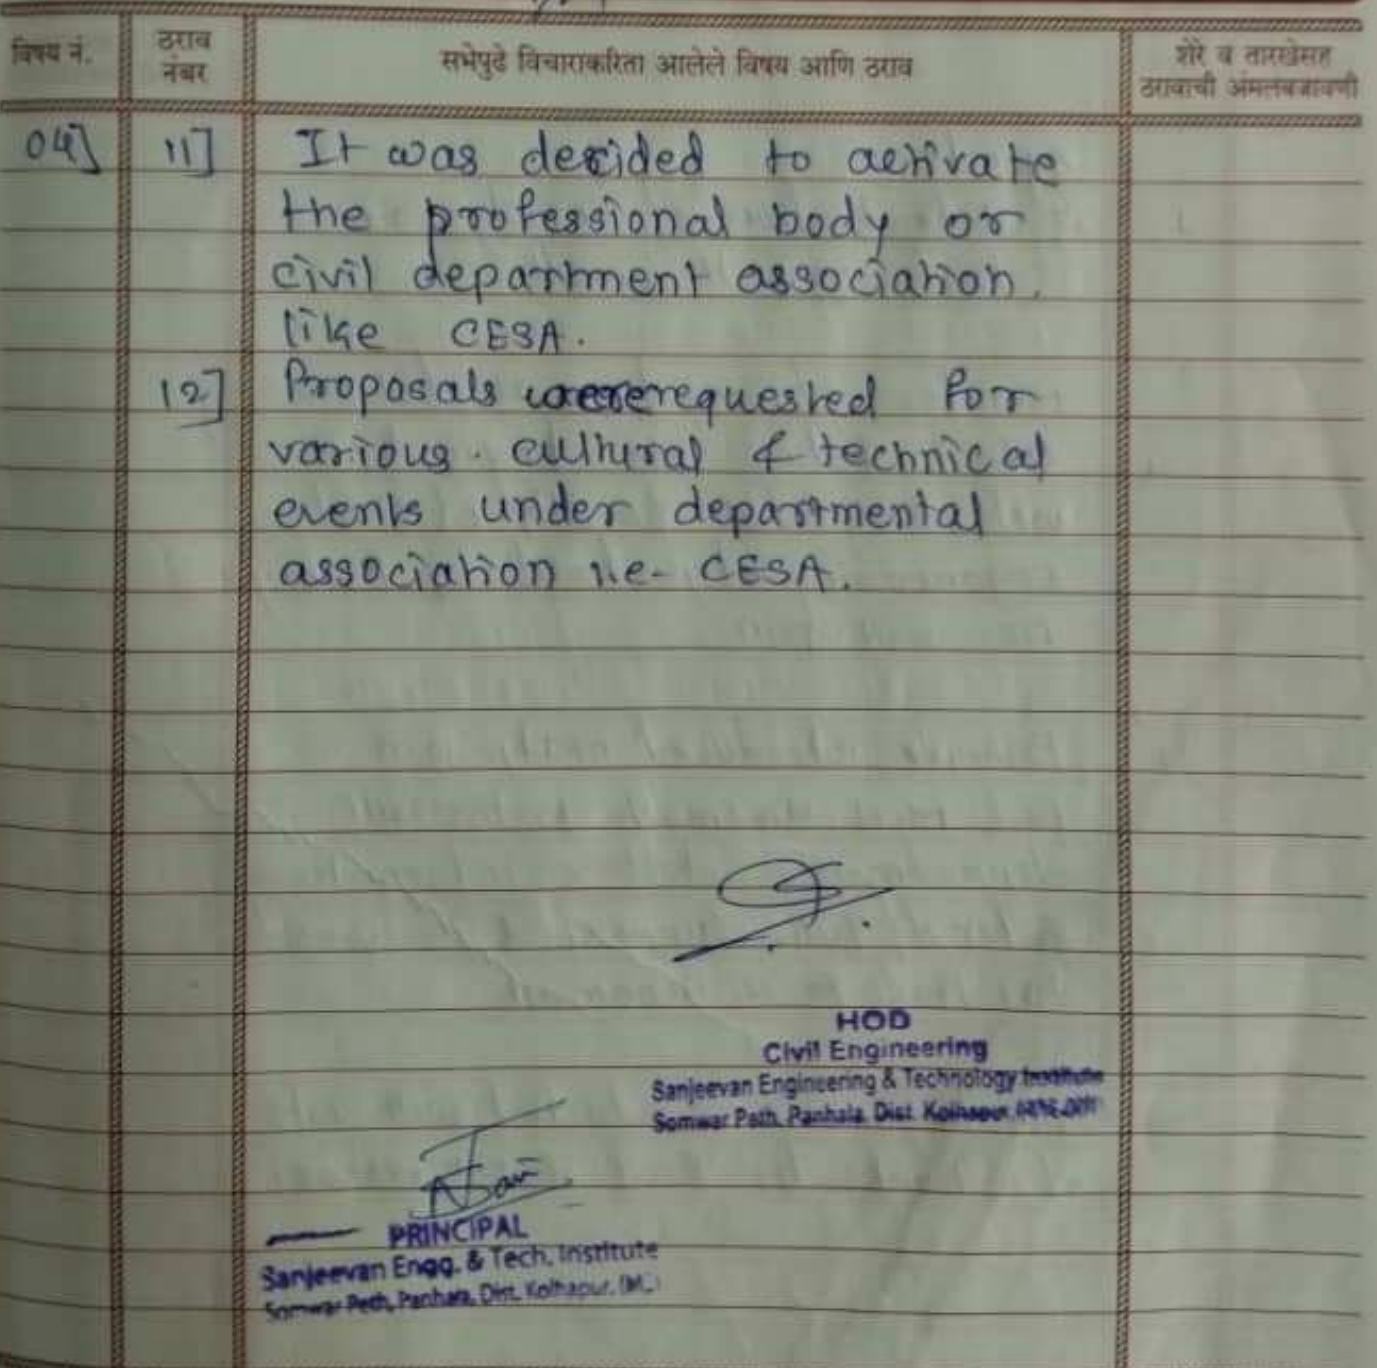 विषय नं.
ठराव
नंबर
सभेपुढे विचाराकरिता आलेले विषय आणि ठराव
शेरे व तारखेसह
ठरावाची अंमलबजावणी
04] 11] It was decided to activate
the professional body or
civil department association.
like CESA.
12] Proposals were requested for
various. cultural & technical
events under departmental
association i.e- CESA.
HOD
Civil Engineering
Sanjeevan Engineering & Technology Institute
Somwar Peth, Panhala, Dist. Kolhapur
PRINCIPAL
Sanjeevan Engg. & Tech. Institute
Somwar Peth, Panhala, Dist. Kolhapur.